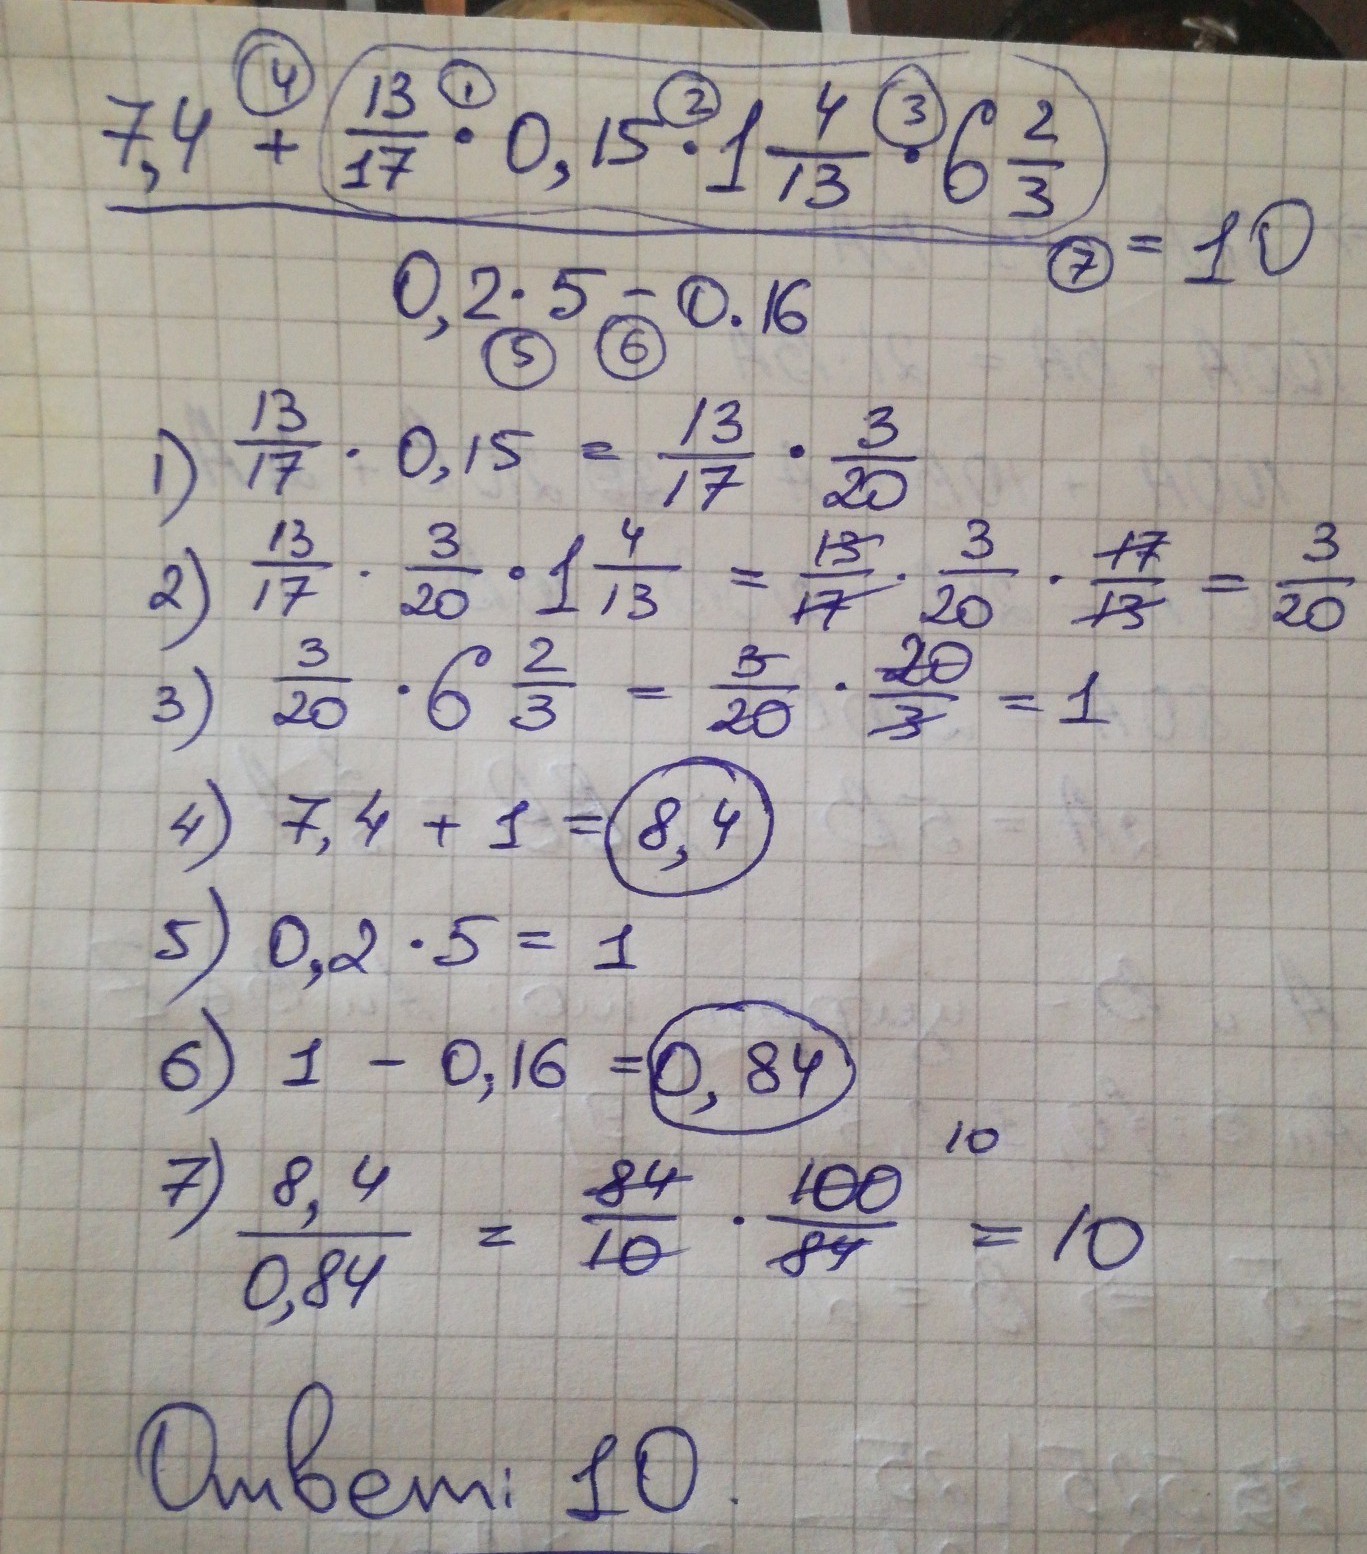 7,4 + 13/17 · 0,15 · 1 4/13 · 6 2/3
④ ① ② ③
0,2 · 5 - 0.16
⑤ ⑥ ⑦ = 10
1) 13/17 · 0,15 = 13/17 · 3/20
2) 13/17 · 3/20 · 1 4/13 = 13/17 · 3/20 · 17/13 = 3/20
3) 3/20 · 6 2/3 = 3/20 · 20/3 = 1
4) 7,4 + 1 = 8,4
5) 0,2 · 5 = 1
6) 1 - 0,16 = 0,84
7) 8,4/0,84 = 84/10 · 100/84 10 = 10
Ответ: 10.